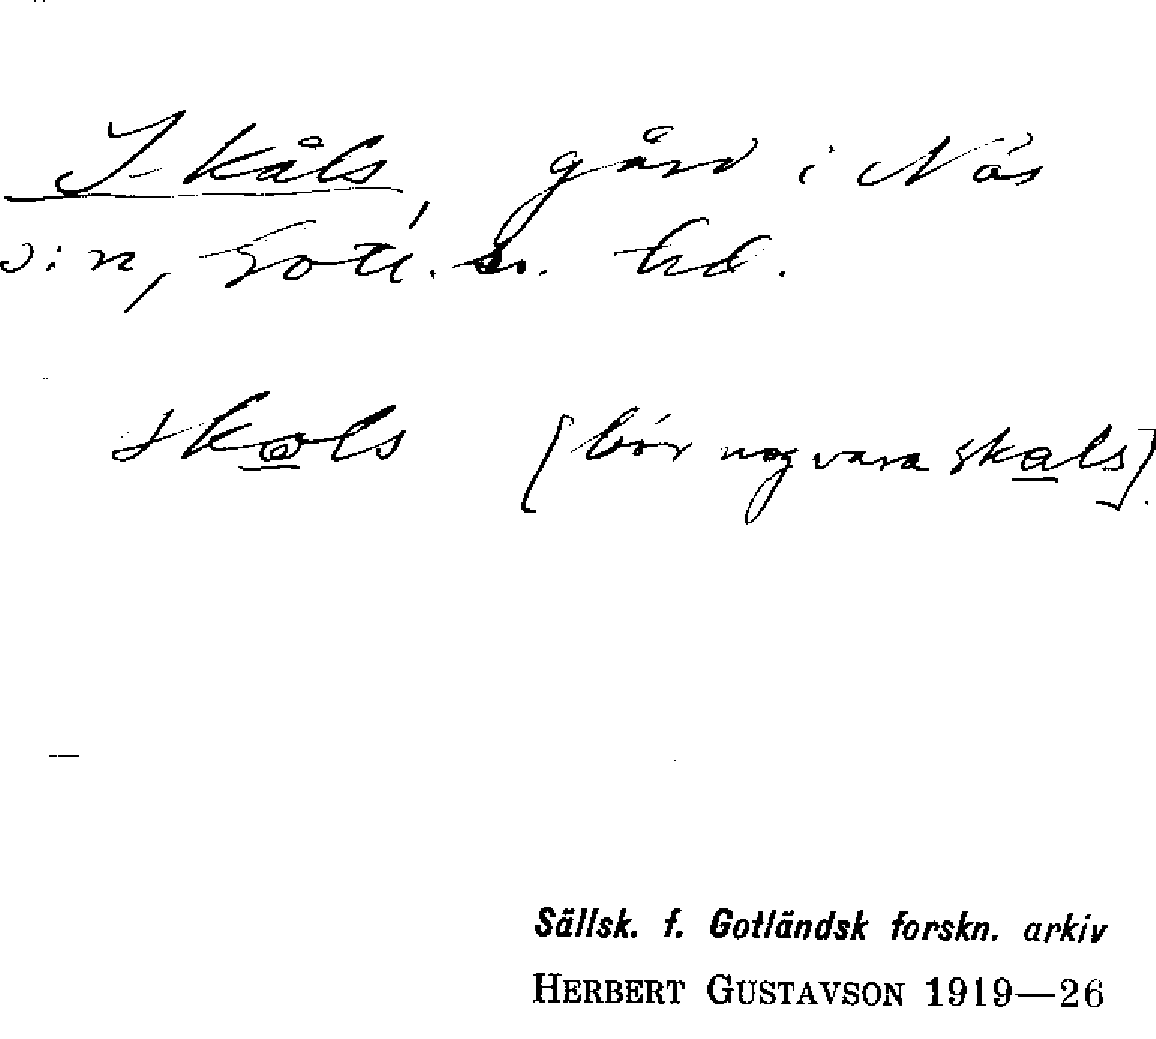 Skåls, gård i Näs
s:n, Gotl. s. hd.
skols [bör nog vara skals].
Sällsk. f. Gotländsk forskn. arkiv
HERBERT GUSTAVSON 1919—26